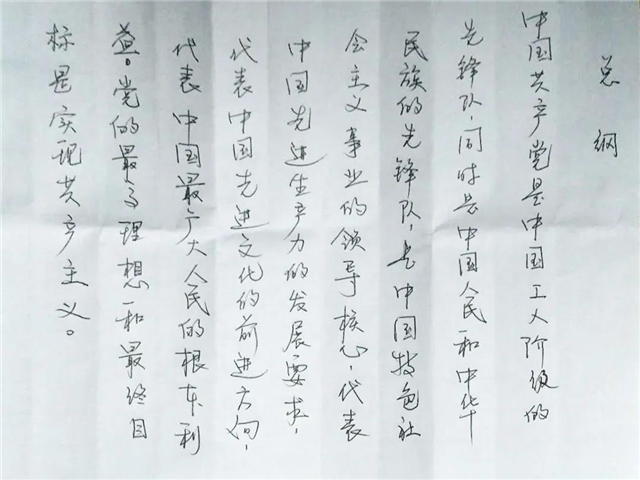 总纲
中国共产党是中国工人阶级的
先锋队，同时是中国人民和中华
民族的先锋队，是中国特色社
会主义事业的领导核心，代表
中国先进生产力的发展要求，
代表中国先进文化的前进方向，
代表中国最广大人民的根本利
益。党的最高理想和最终目
标是实现共产主义。